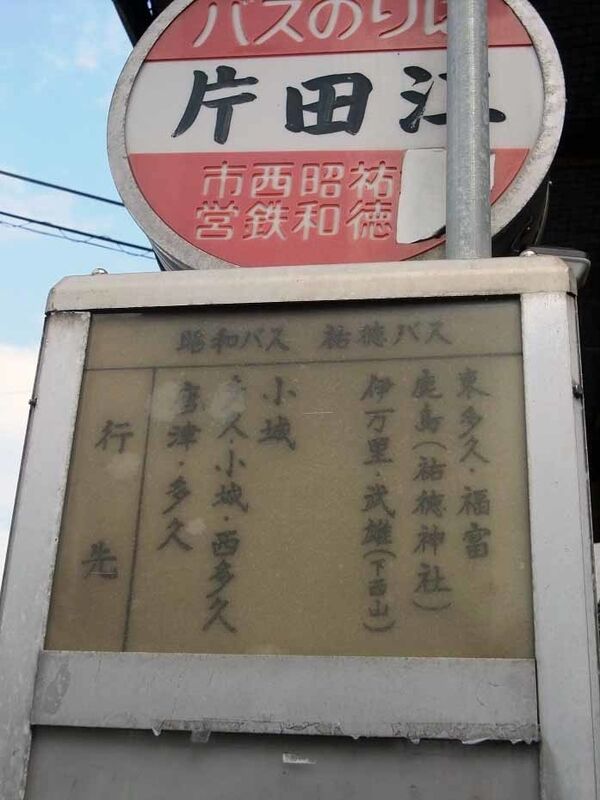 バスのりば
片田江
市営
西鉄
昭和
祐徳
昭和バス　祐徳バス
東多久・福富
鹿島(祐徳神社)
伊万里・武雄(下西山)
小城
多久・小城・西多久
唐津・多久
行先